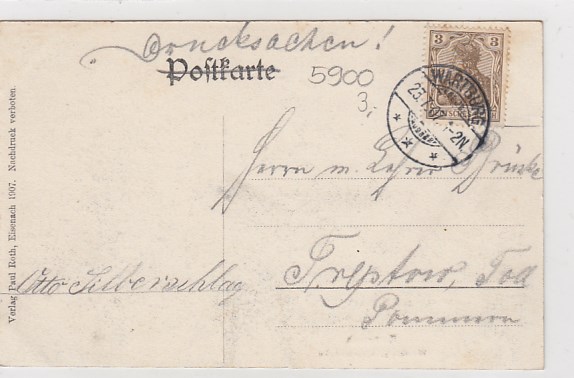 Drucksachen!
Postkarte
5900
3,
3 3
WARTBURG
Herrn m. Lehrer
Treptow, Toll
Pommern
Otto Silberschlag
Verlag Paul Roth, Eisenach 1907. Nachdruck verboten.